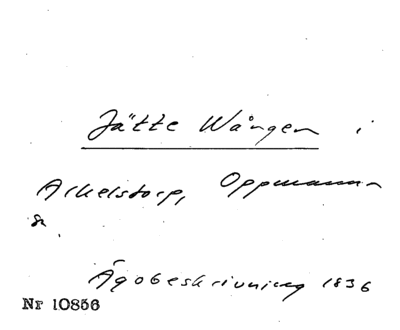 Jätte Wången i
Arkelstorp, Oppmanna
sn.
Ägobeskrivning 1836
Nr 10856